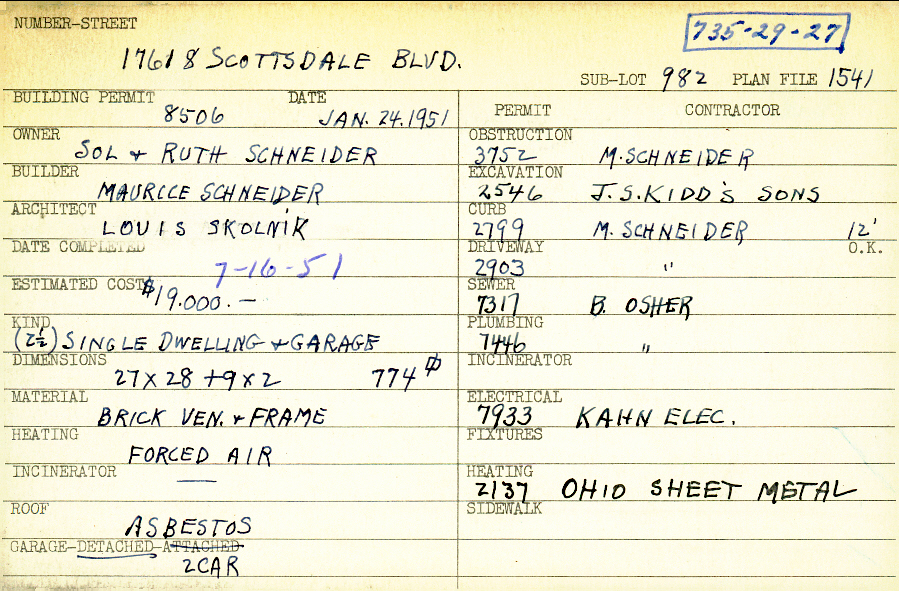 NUMBER-STREET
735-29-27
17618 SCOTTSDALE BLVD.
SUB-LOT 982 PLAN FILE 1541
BUILDING PERMIT DATE
8506 JAN. 24. 1951
OWNER
SOL + RUTH SCHNEIDER
BUILDER
MAURICE SCHNEIDER
ARCHITECT
LOUIS SKOLNIK
DATE COMPLETED
7-16-51
ESTIMATED COST
$19.000.—
KIND
(2½) SINGLE DWELLING + GARAGE
DIMENSIONS
27 x 28 + 9 x 2 774
MATERIAL
BRICK VEN. + FRAME
HEATING
FORCED AIR
INCINERATOR
—
ROOF
ASBESTOS
GARAGE-DETACHED-ATTACHED
2 CAR
PERMIT CONTRACTOR
OBSTRUCTION
3752 M. SCHNEIDER
EXCAVATION
2546 J.S. KIDD'S SONS
CURB
2799 M. SCHNEIDER 12'
DRIVEWAY O.K.
2903 "
SEWER
7317 B. OSHER
PLUMBING
7446 "
INCINERATOR
ELECTRICAL
7933 KAHN ELEC.
FIXTURES
HEATING
2137 OHIO SHEET METAL
SIDEWALK